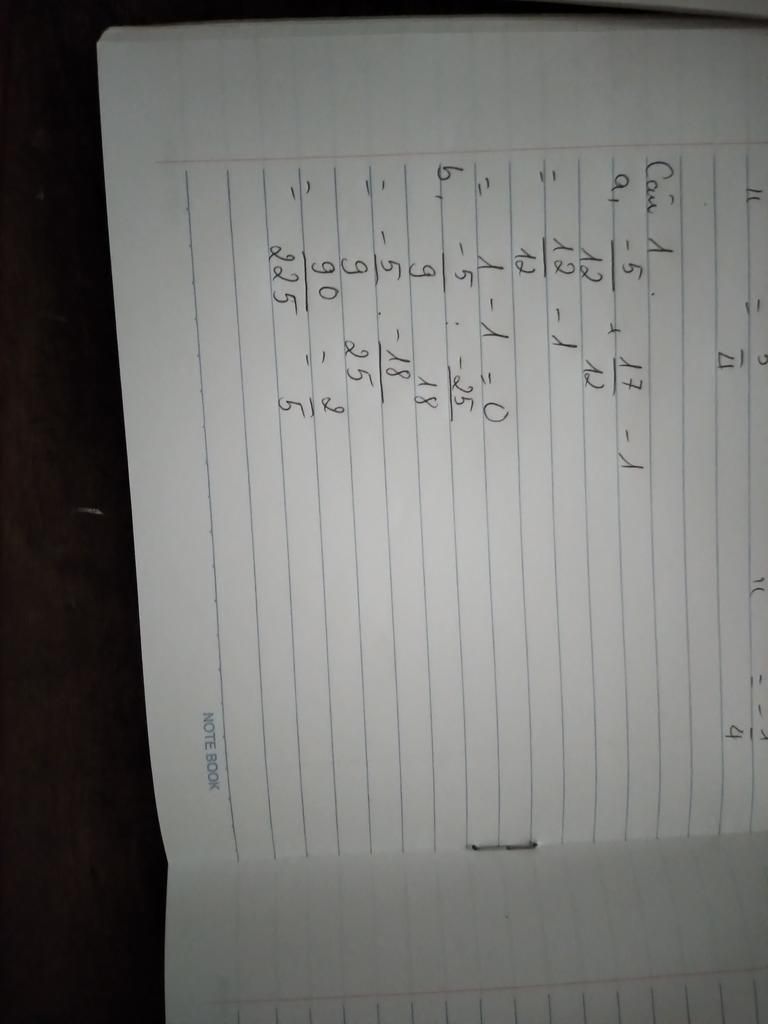 x = 3/4 x = -1/4
Câu 1.
a, -5/12 + 17/12 - 1
= 12/12 - 1
= 1 - 1 = 0
b, -5/9 : -25/18
= -5/9 . -18/25
= 90/225 = 2/5
NOTE BOOK